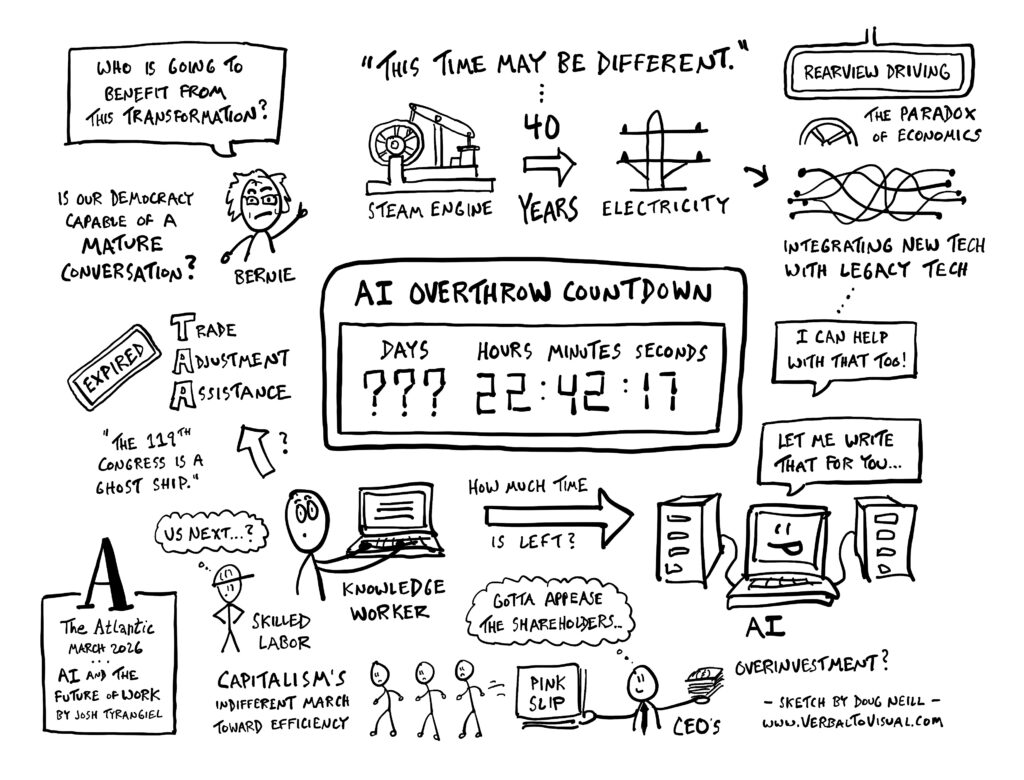 WHO IS GOING TO
BENEFIT FROM
THIS TRANSFORMATION?
IS OUR DEMOCRACY
CAPABLE OF A
MATURE
CONVERSATION?
BERNIE
"THIS TIME MAY BE DIFFERENT."
STEAM ENGINE
40
YEARS
ELECTRICITY
REARVIEW DRIVING
THE PARADOX
OF ECONOMICS
INTEGRATING NEW TECH
WITH LEGACY TECH
I CAN HELP
WITH THAT TOO!
AI OVERTHROW COUNTDOWN
DAYS HOURS MINUTES SECONDS
??? 22:42:17
EXPIRED
TRADE
ADJUSTMENT
ASSISTANCE
"THE 119TH
CONGRESS IS A
GHOST SHIP."
?
US NEXT...?
SKILLED
LABOR
KNOWLEDGE
WORKER
HOW MUCH TIME
IS LEFT?
LET ME WRITE
THAT FOR YOU...
AI
A
The Atlantic
MARCH 2026
...
AI AND THE
FUTURE OF WORK
BY JOSH TYRANGIEL
CAPITALISM'S
INDIFFERENT MARCH
TOWARD EFFICIENCY
GOTTA APPEASE
THE SHAREHOLDERS...
PINK
SLIP
CEO'S
OVERINVESTMENT?
- SKETCH BY DOUG NEILL -
WWW.VERBALTOVISUAL.COM